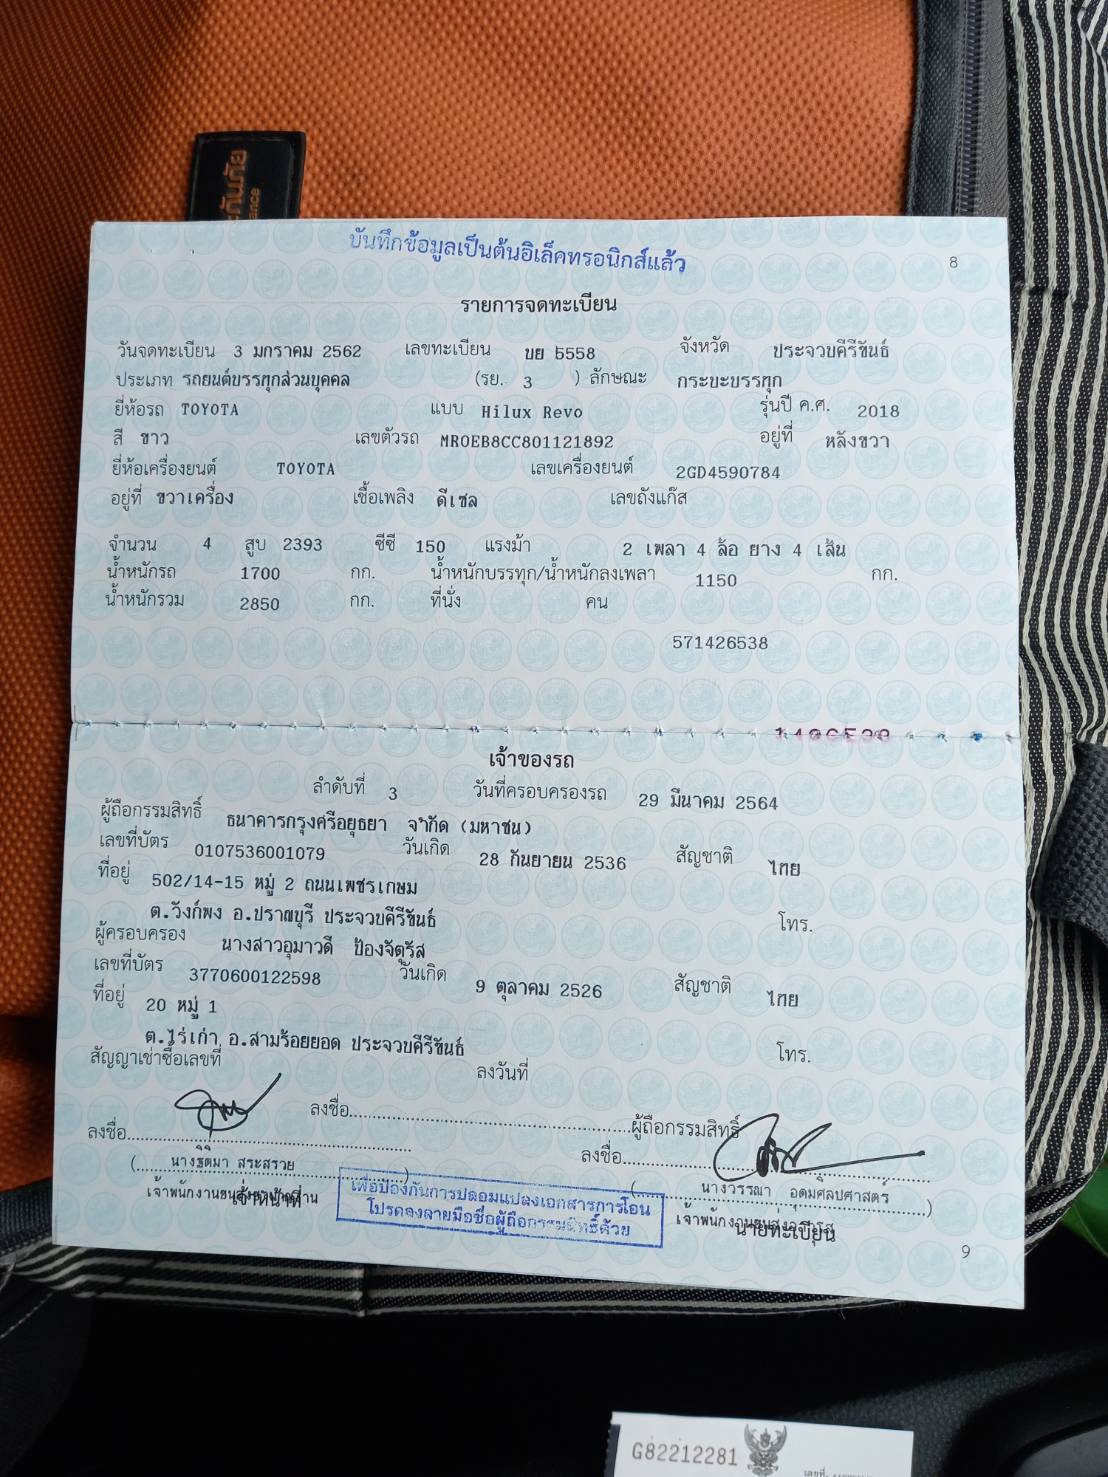 กันภัย
ance
บันทึกข้อมูลเป็นต้นอิเล็คทรอนิกส์แล้ว
8
รายการจดทะเบียน
วันจดทะเบียน 3 มกราคม 2562 เลขทะเบียน ขย 5558 จังหวัด ประจวบคีรีขันธ์
ประเภท รถยนต์บรรทุกส่วนบุคคล (รย. 3 ) ลักษณะ กระบะบรรทุก
ยี่ห้อรถ TOYOTA แบบ Hilux Revo รุ่นปี ค.ศ. 2018
สี ขาว เลขตัวรถ MR0EB8CC801121892 อยู่ที่ หลังขวา
ยี่ห้อเครื่องยนต์ TOYOTA เลขเครื่องยนต์ 2GD4590784
อยู่ที่ ขวาเครื่อง เชื้อเพลิง ดีเซล เลขถังแก๊ส
จำนวน 4 สูบ 2393 ซีซี 150 แรงม้า 2 เพลา 4 ล้อ ยาง 4 เส้น
น้ำหนักรถ 1700 กก. น้ำหนักบรรทุก/น้ำหนักลงเพลา 1150 กก.
น้ำหนักรวม 2850 กก. ที่นั่ง คน
571426538
เจ้าของรถ
ลำดับที่ 3 วันที่ครอบครองรถ 29 มีนาคม 2564
ผู้ถือกรรมสิทธิ์ ธนาคารกรุงศรีอยุธยา จำกัด (มหาชน)
เลขที่บัตร 0107536001079 วันเกิด 28 กันยายน 2536 สัญชาติ ไทย
ที่อยู่ 502/14-15 หมู่ 2 ถนนเพชรเกษม
ต.วังก์พง อ.ปราณบุรี ประจวบคีรีขันธ์ โทร.
ผู้ครอบครอง นางสาวอุมาวดี ป้องจัตุรัส
เลขที่บัตร 3770600122598 วันเกิด 9 ตุลาคม 2526 สัญชาติ ไทย
ที่อยู่ 20 หมู่ 1
ต.ไร่เก่า อ.สามร้อยยอด ประจวบคีรีขันธ์ โทร.
สัญญาเช่าซื้อเลขที่ ลงวันที่
ลงชื่อ ผู้ถือกรรมสิทธิ์
ลงชื่อ ลงชื่อ
(นางฐิติมา สระสรวย) (นางวรรณา อุดมศิลปศาสตร์)
เจ้าหน้าที่ นายทะเบียน
เพื่อป้องกันการปลอมแปลงเอกสารการโอน
โปรดลงลายมือชื่อผู้ถือกรรมสิทธิ์ด้วย
9
G82212281
เลขที่.